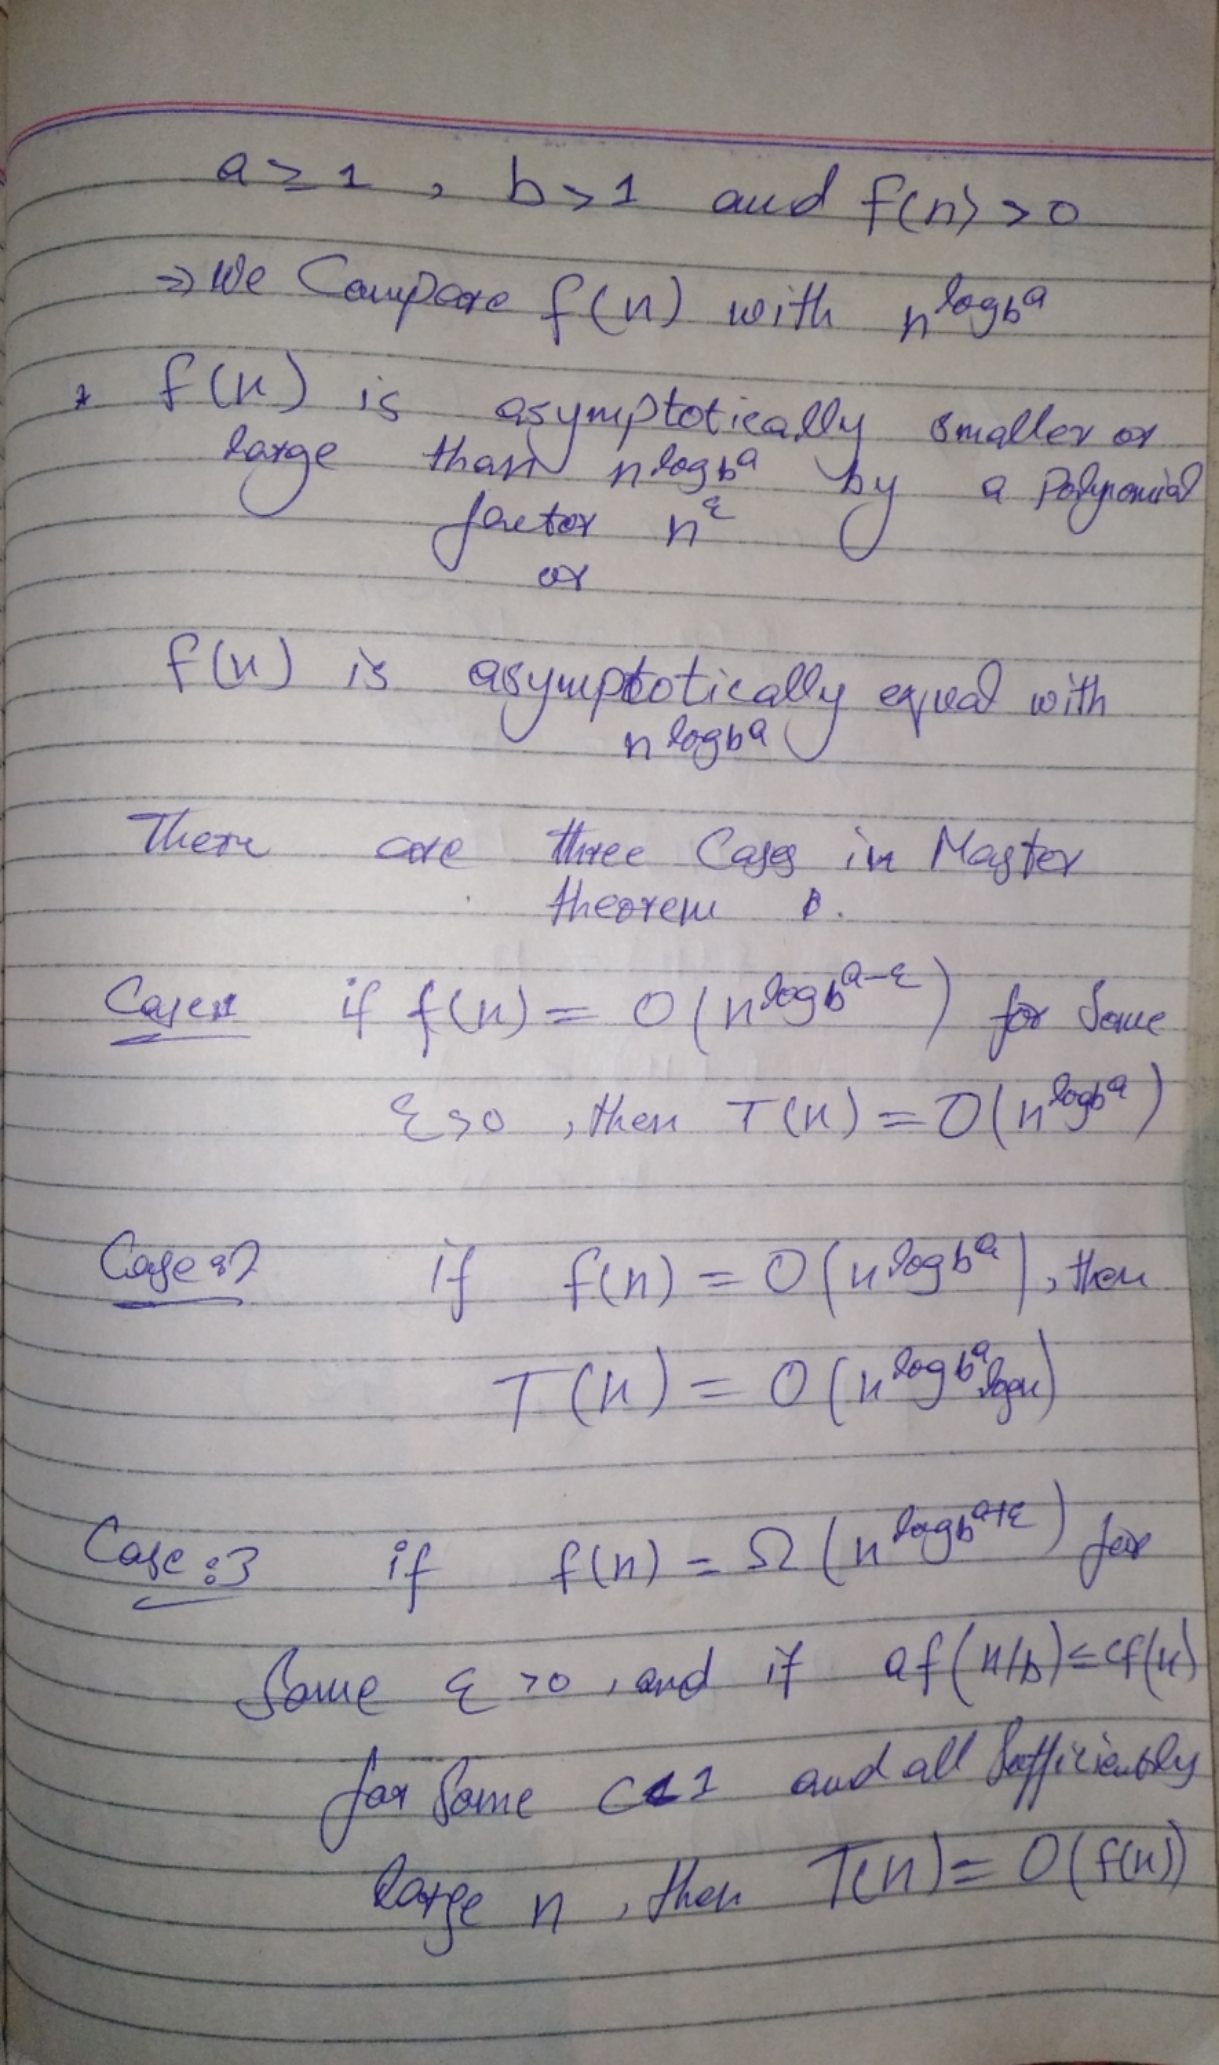 a ≥ 1 , b > 1 and f(n) > 0
⇒ We Compare f(n) with n^log_b^a
* f(n) is asymptotically smaller or
large than n^log_b^a by a Polynomial
factor n^ε
or
f(n) is asymptotically equal with
n^log_b^a
There are three Cases in Master
theorem .
Case:1 if f(n) = O(n^log_b^a-ε) for Some
ε>0 , then T(n) = O(n^log_b^a)
Case:2 if f(n) = O(n^log_b^a), then
T(n) = O(n^log_b^a logn)
Case:3 if f(n) = Ω(n^log_b^a+ε) for
Some ε >0 , and if af(n/b) ≤ cf(n)
for Some c<1 and all Sufficiently
large n , then T(n) = O(f(n))